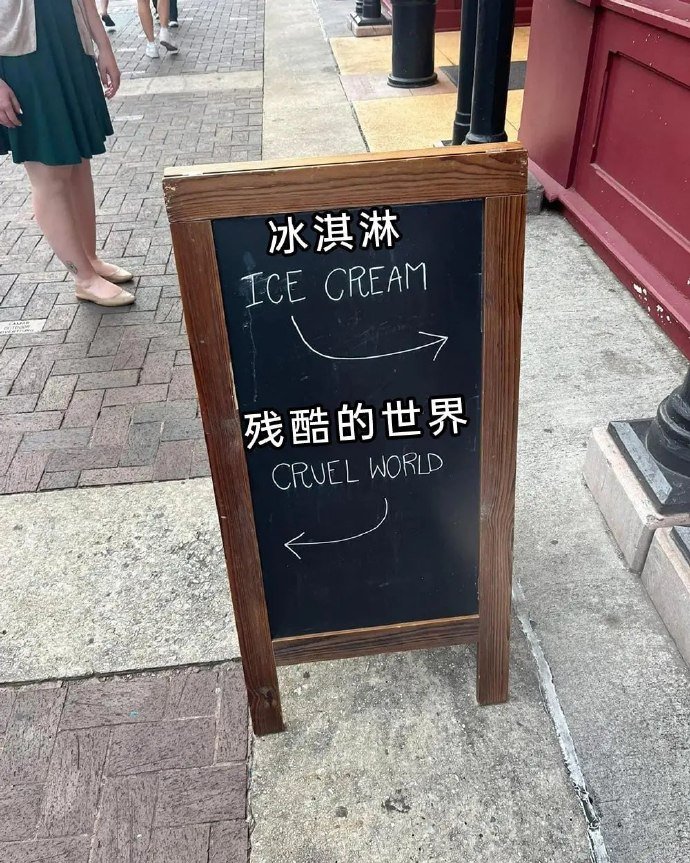 冰淇淋
ICE CREAM
残酷的世界
CRUEL WORLD